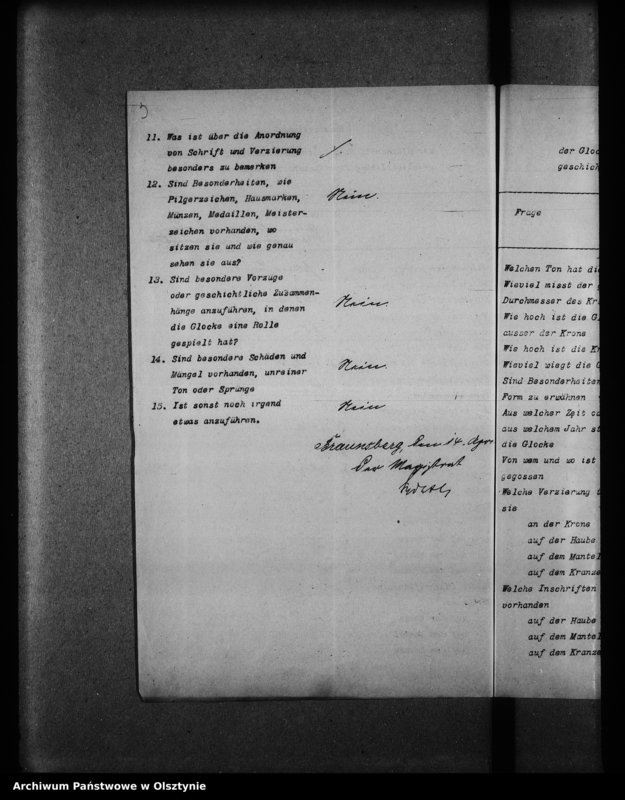 11. Was ist über die Anordnung
von Schrift und Verzierung
besonders zu bemerken
12. Sind Besonderheiten, wie
Pilgerzeichen, Hausmarken,
Münzen, Medaillen, Meister-
zeichen vorhanden, wo
sitzen sie und wie genau
sehen sie aus?
Nein.
13. Sind besondere Vorzüge
oder geschichtliche Zusammen-
hänge anzuführen, in denen
die Glocke eine Rolle
gespielt hat?
Nein.
14. Sind besondere Schäden und
Mängel vorhanden, unreiner
Ton oder Sprünge
Nein.
15. Ist sonst noch irgend
etwas anzuführen.
Nein
Braunsberg, den 14. Apr
Der Magistrat
der Gloc
geschich
Frage
Welchen Ton hat die
Wieviel misst der
Durchmesser des Kr
Wie hoch ist die G
ausser der Krone
Wie hoch ist die Kr
Wieviel wiegt die G
Sind Besonderheiten
Form zu erwähnen
Aus welcher Zeit od
aus welchem Jahr st
die Glocke
Von wem und wo ist
gegossen
Welche Verzierung
sie
an der Krone
auf der Haube
auf dem Mantel
auf dem Kranze
Welche Inschriften
vorhanden
auf der Haube
auf dem Mantel
auf dem Kranze
Archiwum Państwowe w Olsztynie